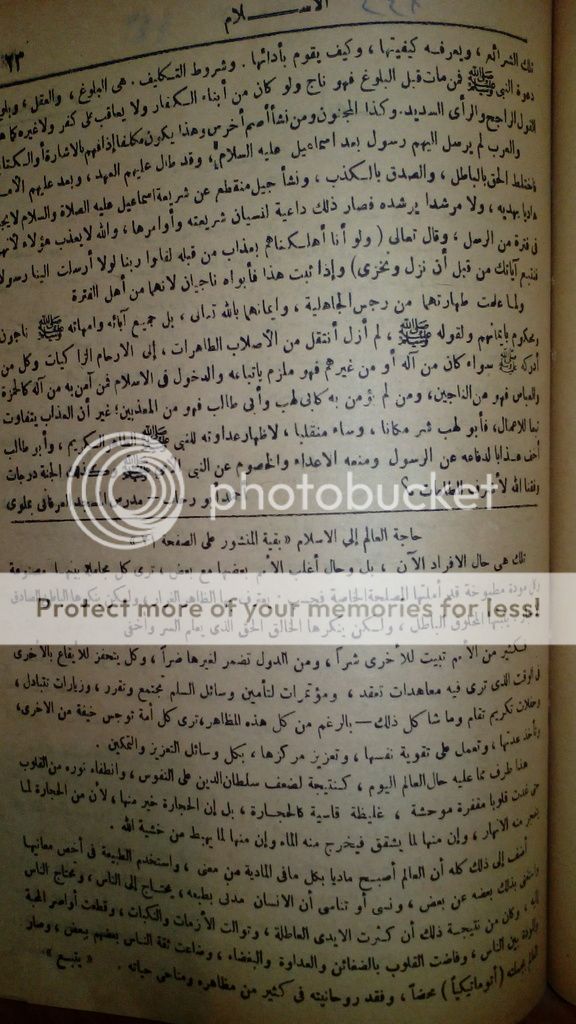 الاسلام
٢٣
تلك الشرائع ، ويعرفه كيفيتها ، وكيف يقوم بأدائها . وشروط التكليف . هى البلوغ ، والعقل ،
دعوة النبى ﷺ فمن مات قبل البلوغ فهو ناج ولو كان من أبناء الكفار ولا يعاقب على كفر ولا غيره
القول الراجح والرأى السديد. وكذا المجنون ومن نشأ أصم أخرس وهذا يكون مكلفا إذا فهم بالاشارة أو
والعرب لم يرسل اليهم رسول بعد اسماعيل عليه السلام ، وقد طال عليهم العهد ، وبعد عليهم
فاختلط الحق بالباطل ، والصدق بالكذب ، ونشأ جيل منقطع عن شريعة اسماعيل عليه الصلاة والسلام
هاديا يهديه ، ولا مرشدا يرشده فصار ذلك داعية لنسيان شريعته وأوامرها ، والله لا يعذب هؤلاء
فى فترة من الرسل ، وقال تعالى ( ولو أنا أهلكناهم بعذاب من قبله لقالوا ربنا لولا أرسلت الينا رسولا
فنتبع آياتك من قبل أن نذل ونخزى ) وإذا ثبت هذا فأبواه ناجيان لانهما من أهل الفترة
ولما علمت طهارتهما من رجس الجاهلية ، وايمانهما بالله تعالى ، بل جميع آبائه وامهاته ﷺ ناجون
ومحكوم بايمانهم ولقوله ﷺ ، لم أزل أنتقل من الأصلاب الطاهرات ، إلى الارحام الزاكيات وكل من
أدركه ﷺ سواء كان من آله أو من غيرهم فهو ملزم باتباعه والدخول فى الاسلام فمن آمن به من آله كالحمزة
والعباس فهو من الناجين، ومن لم يؤمن به كأبى لهب وأبى طالب فهو من المعذبين؛ غير أن العذاب يتفاوت
تبعا للاعمال، فأبو لهب شر مكانا ، وساء منقلبا ، لاظهار عداوته للنبى ﷺ الطاهر الكريم ، وأبو طالب
أخف عذابا لدفاعه عن الرسول ومنعه الاعداء والخصوم عن النبى ﷺ الجنة درجات
وفقنا الله
حاجة العالم إلى الاسلام « بقية المنشور على الصفحة »
تلك هى حال الافراد الآن ، بل وحال أغلب الأمم بعضها مع بعض ، ترى كل مجاملة بينها مصنوعة
photobucket
Protect more of your memories for less!
ولكن ينكرها الخالق الحق الذى يعلم السر وأخفى
فكثير من الأمم تبيت للأخرى شراً ، ومن الدول تضمر لغيرها ضراً ، وكل يتحفز للأيقاع بالأخرى
فى الوقت الذى ترى فيه معاهدات تعقد ، ومؤتمرات لتأمين وسائل السلم تجتمع وتقرر ، وزيارات تتبادل ،
وحفلات تكريم تقام وما شاكل ذلك — بالرغم من كل هذه المظاهر، ترى كل أمة توجس خيفة من الاخرى،
وتأخذ عدتها ، وتعمل على تقوية نفسها ، وتعزيز مركزها ، بكل وسائل التعزيز والتمكين .
هذا طرف مما عليه حال العالم اليوم ، كنتيجة لضعف سلطان الدين على النفوس ، وانطفاء نوره من القلوب
حتى غدت قلوبا مقفرة موحشة ، غليظة قاسية كالحجارة ، بل إن الحجارة خير منها ، لأن من الحجارة لما
يتفجر منه الانهار ، وإن منها لما يشقق فيخرج منه الماء وإن منها لما يهبط من خشية الله .
أضف إلى ذلك كله أن العالم أصبح ماديا بكل مافى المادية من معنى ، واستخدم الطبيعة فى أخص معانيها
واستغنى بذلك بعضه عن بعض ، ونسى أو تناسى أن الانسان مدنى بطبعه ، يحتاج إلى الناس ، وتحتاج الناس
إليه ، وكان من نتيجة ذلك أن كثرت الايدى العاطلة ، وتوالت الأزمات والنكبات ، وقطعت أواصر المحبة
والمودة بين الناس ، وفاضت القلوب بالضغائن والعداوة والبغضاء ، وضاعت ثقة الناس بعضهم ببعض ، وصار
العالم بجملته ( أتوماتيكياً ) محضاً ، وفقد روحانيته فى كثير من مظاهره ومناحى حياته . « يتبع »